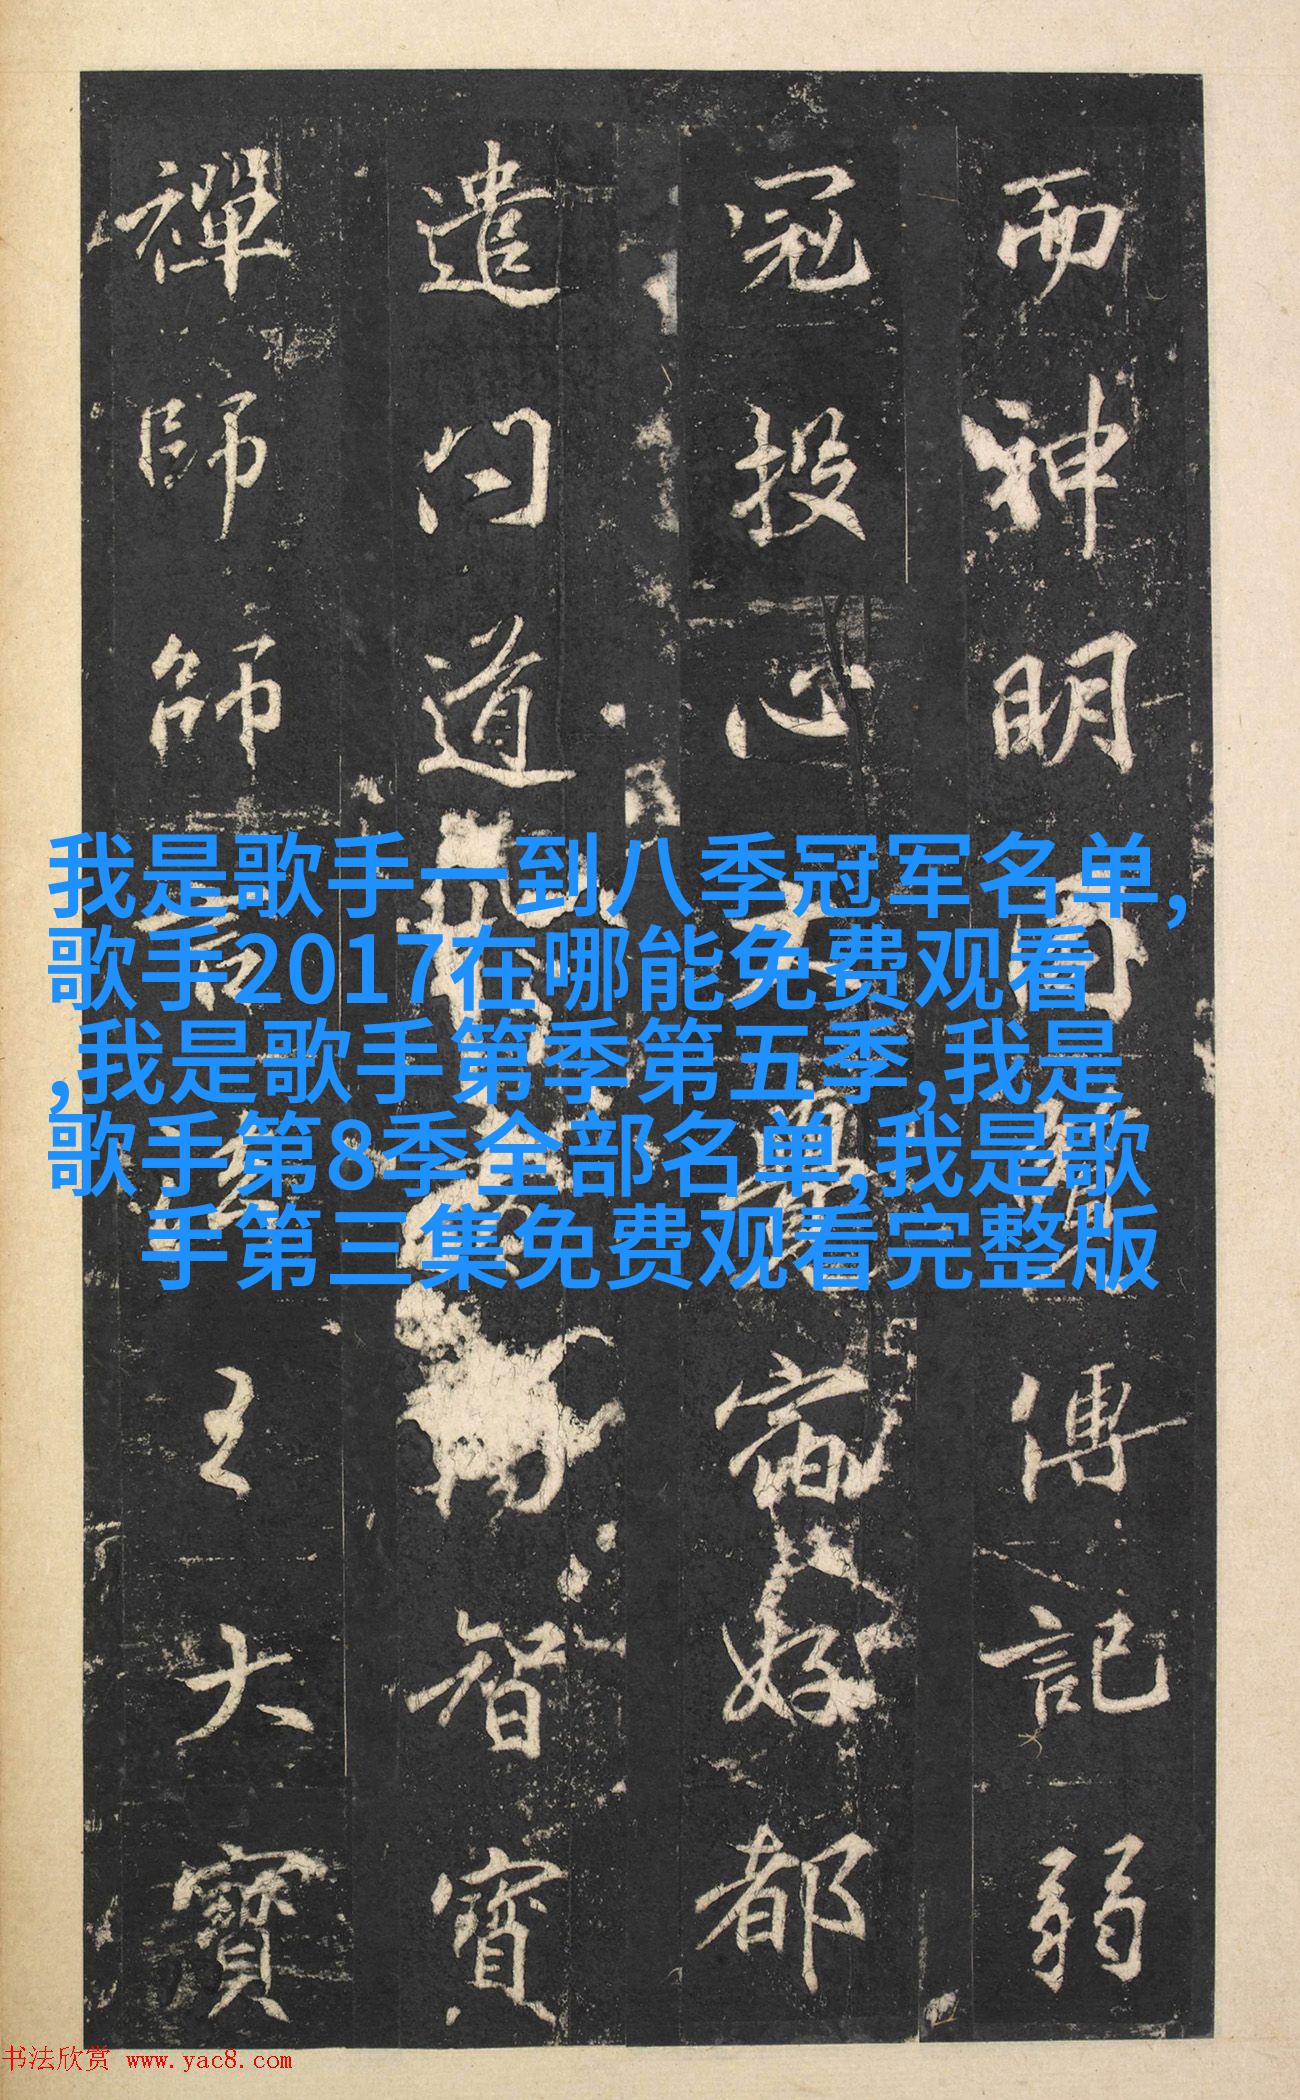 而神明傳記弱
冠投心宿好都
遣問道智寶
禪師師王大寶
我是歌手一到八季冠军名单,
歌手2017在哪能免费观看
,我是歌手第季第五季,我是
歌手第8季全部名单,我是歌
手第三集免费观看完整版
书法欣赏 www.yac8.com